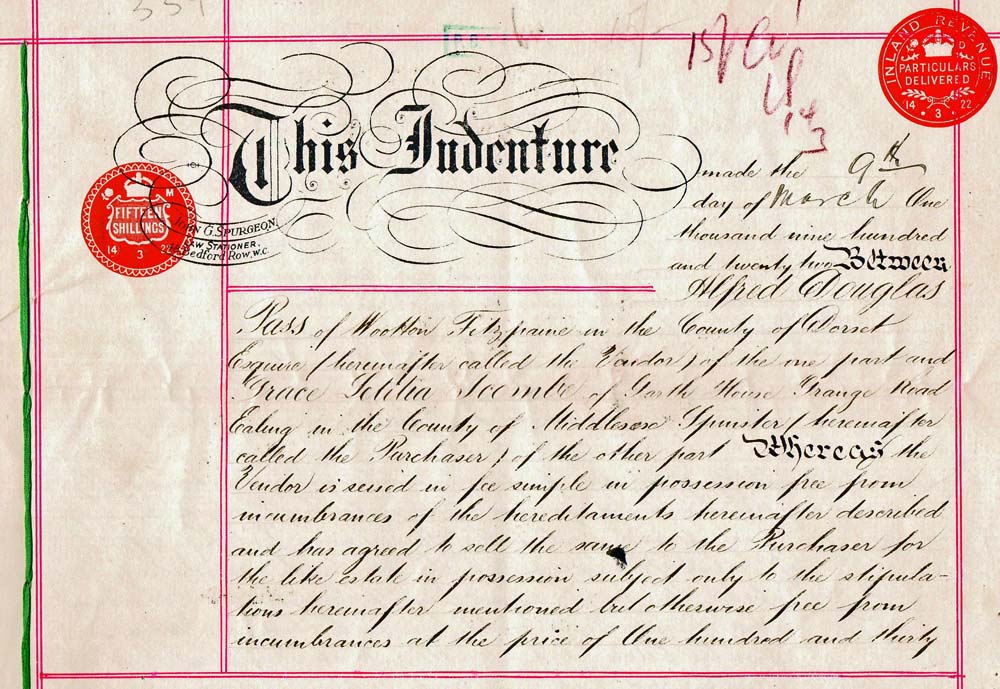 554
15/
14
3
INLAND REVENUE
PARTICULARS
DELIVERED
14 22
3
This Indenture
made the 9th
day of March One
thousand nine hundred
and twenty two Between
FIFTEEN
SHILLINGS
14 3 22
JOHN G. SPURGEON,
LAW STATIONER.
Bedford Row, W.C.
Alfred Douglas
Pass of Wootton Fitzpaine in the County of Dorset
Esquire (hereinafter called the Vendor) of the one part and
Grace Letitia of Garth House Grange Road
Ealing in the County of Middlesex Spinster (hereinafter
called the Purchaser) of the other part Whereas the
Vendor is seised in fee simple in possession free from
incumbrances of the hereditaments hereinafter described
and has agreed to sell the same to the Purchaser for
the like estate in possession subject only to the stipula-
tions hereinafter mentioned but otherwise free from
incumbrances at the price of One hundred and thirty